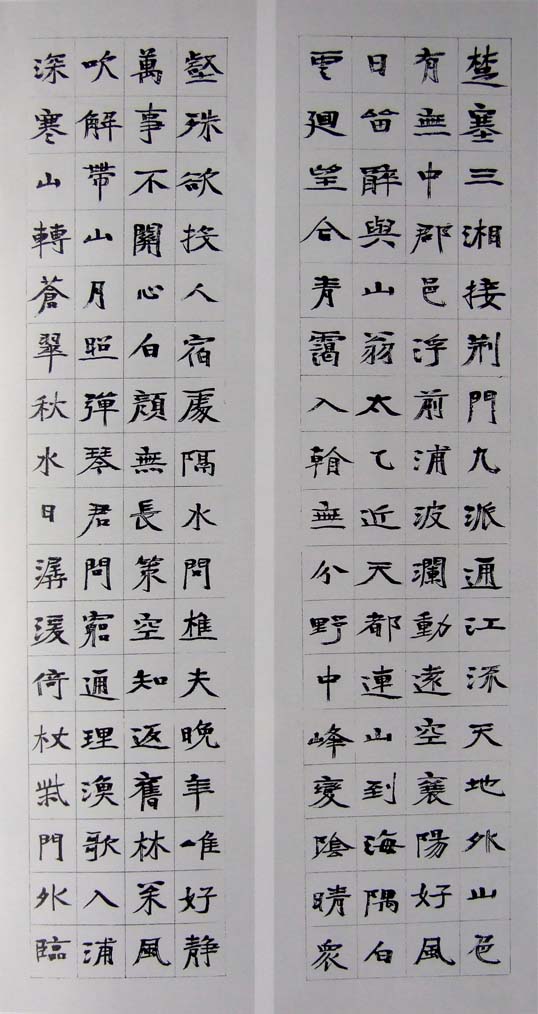 楚塞三湘接荆門九派通江流天地外山色
有無中郡邑浮前浦波瀾動遠空襄陽好風
日留醉與山翁太乙近天都連山到海隅白
雲迴望合青靄入看無分野中峰變陰晴眾
壑殊欲投人宿處隔水問樵夫晚年唯好静
萬事不關心自顧無長策空知返舊林松風
吹解帶山月照彈琴君問窮通理漁歌入浦
深寒山轉蒼翠秋水日潺湲倚杖柴門外臨